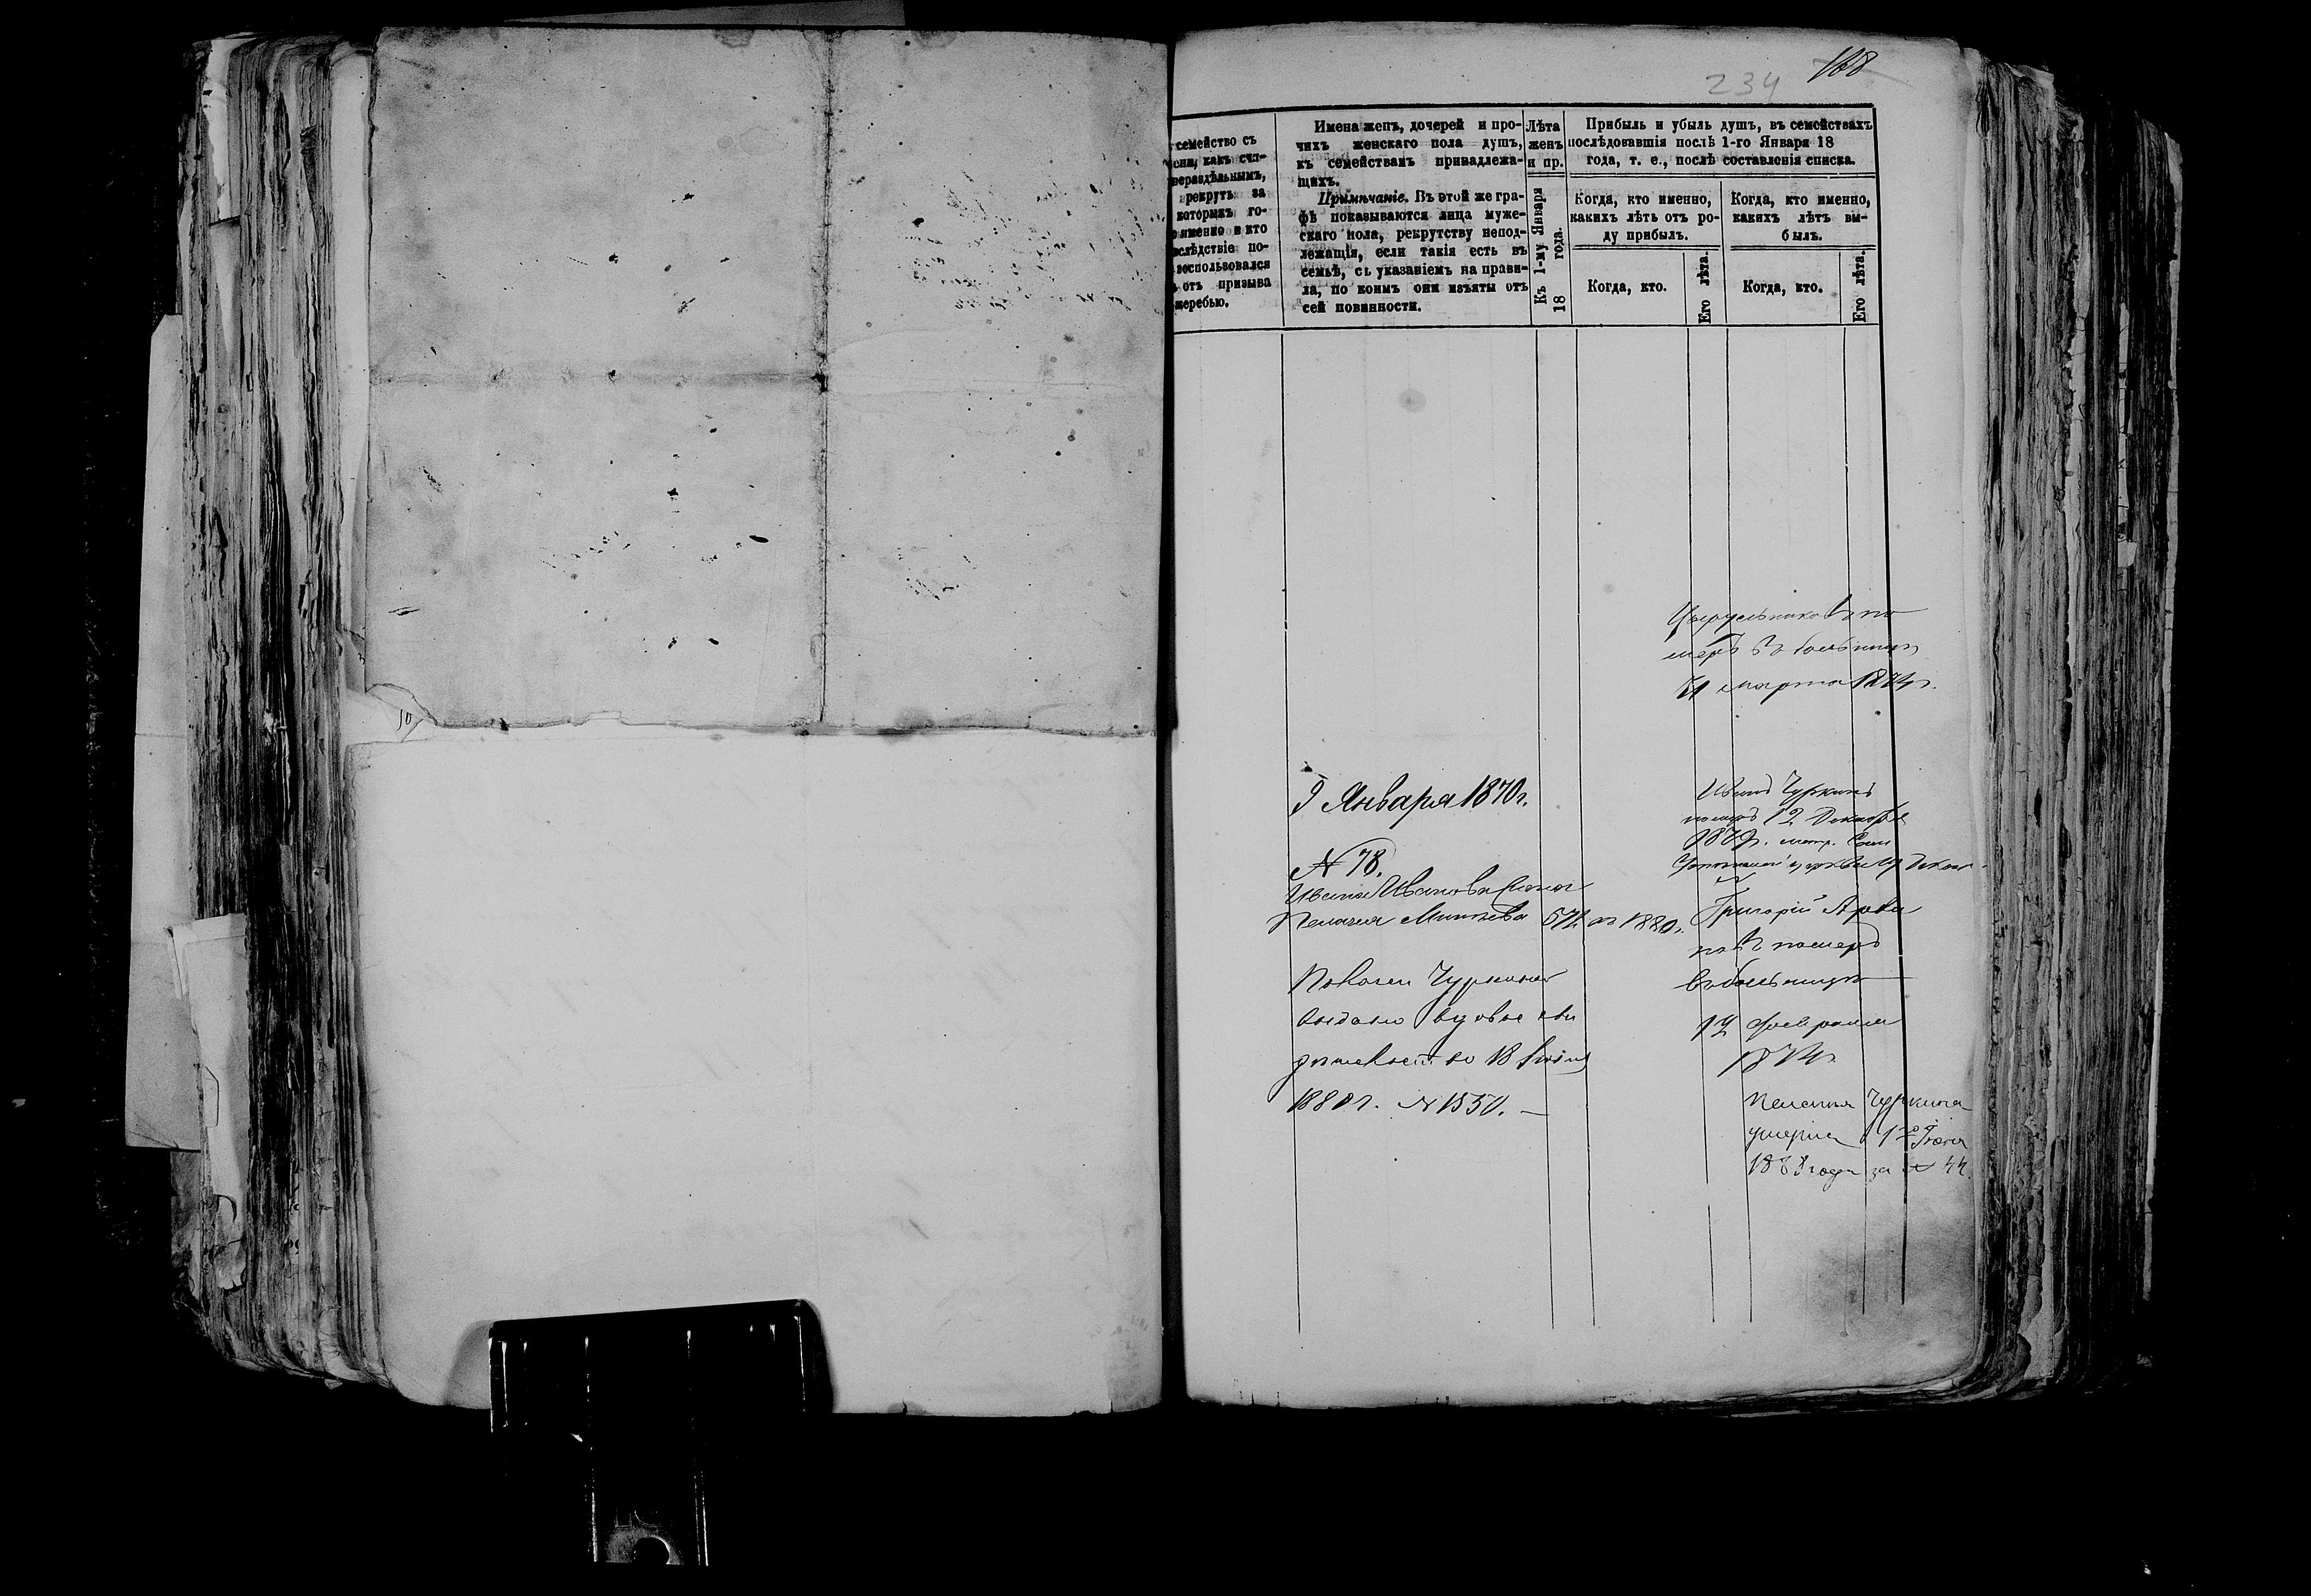 188
234
семейство съ
рекрутъ за
которыхъ го-
именно и кто
по-
воспользовался
отъ призыва
жеребью.
Имена женъ, дочерей и про-
чихъ женскаго пола душъ,
къ семействамъ принадлежа-
щихъ.
Примѣчаніе. Въ этой же гра-
фѣ показываются лица муже-
скаго пола, рекрутству непод-
лежащія, если такія есть въ
семьѣ, съ указаніемъ на прави-
ла, по коимъ они изъяты отъ
сей повинности.
Лѣта
женъ
и пр.
Къ 1-му Января
18 года.
Прибыль и убыль душъ, въ семействахъ
послѣдовавшія послѣ 1-го Января 18
года, т. е., послѣ составленія списка.
Когда, кто именно,
какихъ лѣтъ отъ ро-
ду прибылъ.
Когда, кто.
Его лѣта.
Когда, кто именно,
какихъ лѣтъ вы-
былъ.
Когда, кто.
Его лѣта.
Цырульниковъ по
меръ въ больницѣ
марта
9 Января 1870 г.
№ 78.
Ивана Иванова жена
Пелагея 57 л. въ 1880 г.
Чуркиной
выдано вдовье сви
дѣтельство 18
1880 г. № 1550. —
Иванъ Чуркинъ
померъ 12 Декабря
1879 г. метр.
церкви
Григорій
померъ
въ больницѣ
февраля
Пелагея Чуркина
умерла
года за № 44